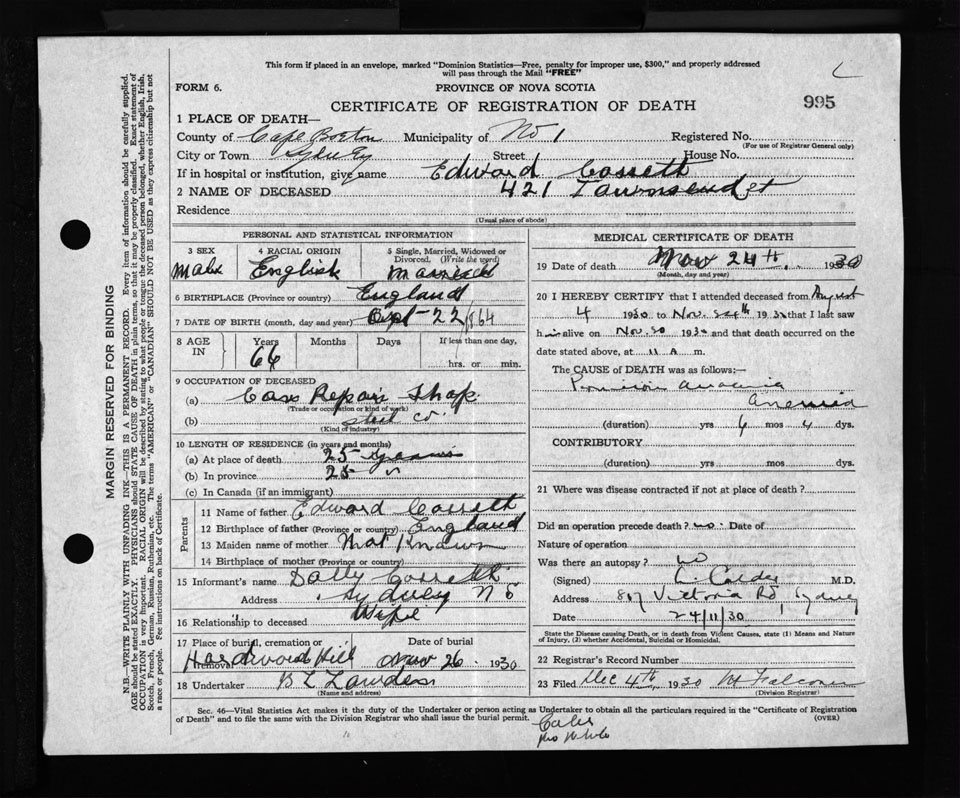 This form if placed in an envelope, marked "Dominion Statistics—Free, penalty for improper use, $300," and properly addressed
will pass through the Mail "FREE"
FORM 6.
PROVINCE OF NOVA SCOTIA
CERTIFICATE OF REGISTRATION OF DEATH
995
1 PLACE OF DEATH—
County of Cape Breton Municipality of No 1 Registered No.
(For use of Registrar General only)
City or Town Sydney Street House No.
If in hospital or institution, give name Edward
2 NAME OF DECEASED 421 Townsend st
Residence
(Usual place of abode)
PERSONAL AND STATISTICAL INFORMATION
3 SEX 4 RACIAL ORIGIN 5 Single, Married, Widowed or Divorced. (Write the word)
Male English Married
6 BIRTHPLACE (Province or country) England
7 DATE OF BIRTH (month, day and year) Sept 22 1864
8 AGE IN Years Months Days If less than one day,
66 hrs. or min.
9 OCCUPATION OF DECEASED
(a) Cars Repair Shop
(Trade or occupation or kind of work)
(b) steel co.
(Kind of industry)
10 LENGTH OF RESIDENCE (in years and months)
(a) At place of death 25 years
(b) In province 25 "
(c) In Canada (if an immigrant)
Parents
11 Name of father Edward
12 Birthplace of father (Province or country) England
13 Maiden name of mother Not Known
14 Birthplace of mother (Province or country)
15 Informant's name Sally
Address Sydney N S
16 Relationship to deceased Wife
17 Place of burial, cremation or removal Date of burial
Hardwood Hill Nov 26 1930
18 Undertaker
(Name and address)
MEDICAL CERTIFICATE OF DEATH
19 Date of death Nov 24th, 1930
(Month, day and year)
20 I HEREBY CERTIFY that I attended deceased from August
4 1930 to Nov. 24th 1930 that I last saw
him alive on Nov. 20 1930 and that death occurred on
date stated above, at 11 A m.
The CAUSE OF DEATH was as follows:—
Pernicious anaemia
(duration) yrs mos 4 dys.
CONTRIBUTORY
(duration) yrs mos dys.
21 Where was disease contracted if not at place of death?
Did an operation precede death? no. Date of
Nature of operation
Was there an autopsy? no
(Signed) M.D.
Address Victoria Rd, Sydney
Date 24/11/30
State the Disease causing Death, or in death from Violent Causes, state (1) Means and Nature
of Injury, (2) whether Accidental, Suicidal or Homicidal.
22 Registrar's Record Number
23 Filed Dec 4th 1930
(Division Registrar)
Sec. 46—Vital Statistics Act makes it the duty of the Undertaker or person acting as Undertaker to obtain all the particulars required in the "Certificate of Registration
of Death" and to file the same with the Division Registrar who shall issue the burial permit. (OVER)
MARGIN RESERVED FOR BINDING
N.B.—WRITE PLAINLY WITH UNFADING INK—THIS IS A PERMANENT RECORD. Every item of information should be carefully supplied.
AGE should be stated EXACTLY. PHYSICIANS should STATE CAUSE OF DEATH in plain terms, so that it may be properly classified. Exact statement of
OCCUPATION is very important. RACIAL ORIGIN will be described by stating to what people or tongue the deceased person belonged, whether English, Irish,
Scotch, French, German, Russian, Ruthenian, etc. The terms "AMERICAN" or "CANADIAN" SHOULD NOT BE USED as they express citizenship but not
a race or people. Fee instructions on back of Certificate.